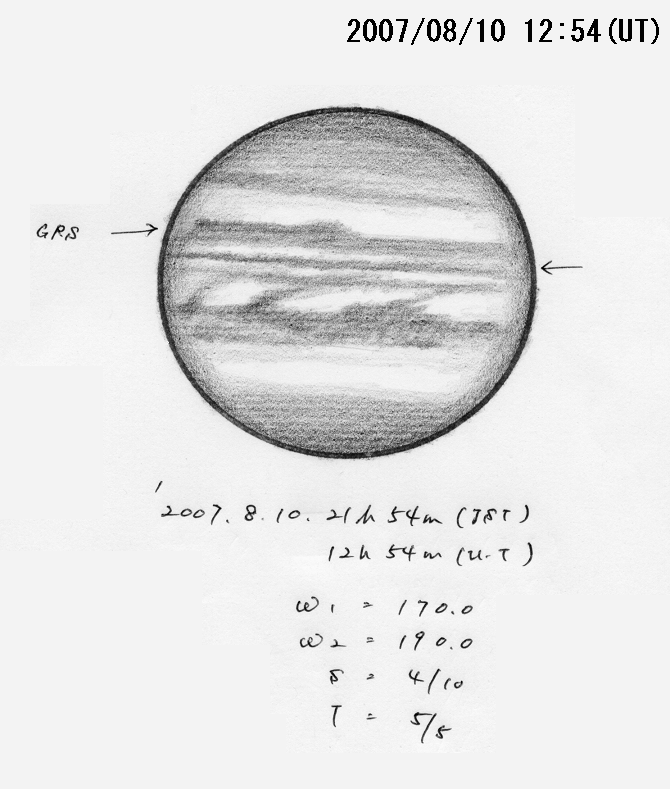 2007/08/10 12:54(UT)
GRS
'2007. 8. 10. 21h 54m (JST)
12h 54m (U.T)
ω1 = 170.0
ω2 = 190.0
S = 4/10
T = 5/5